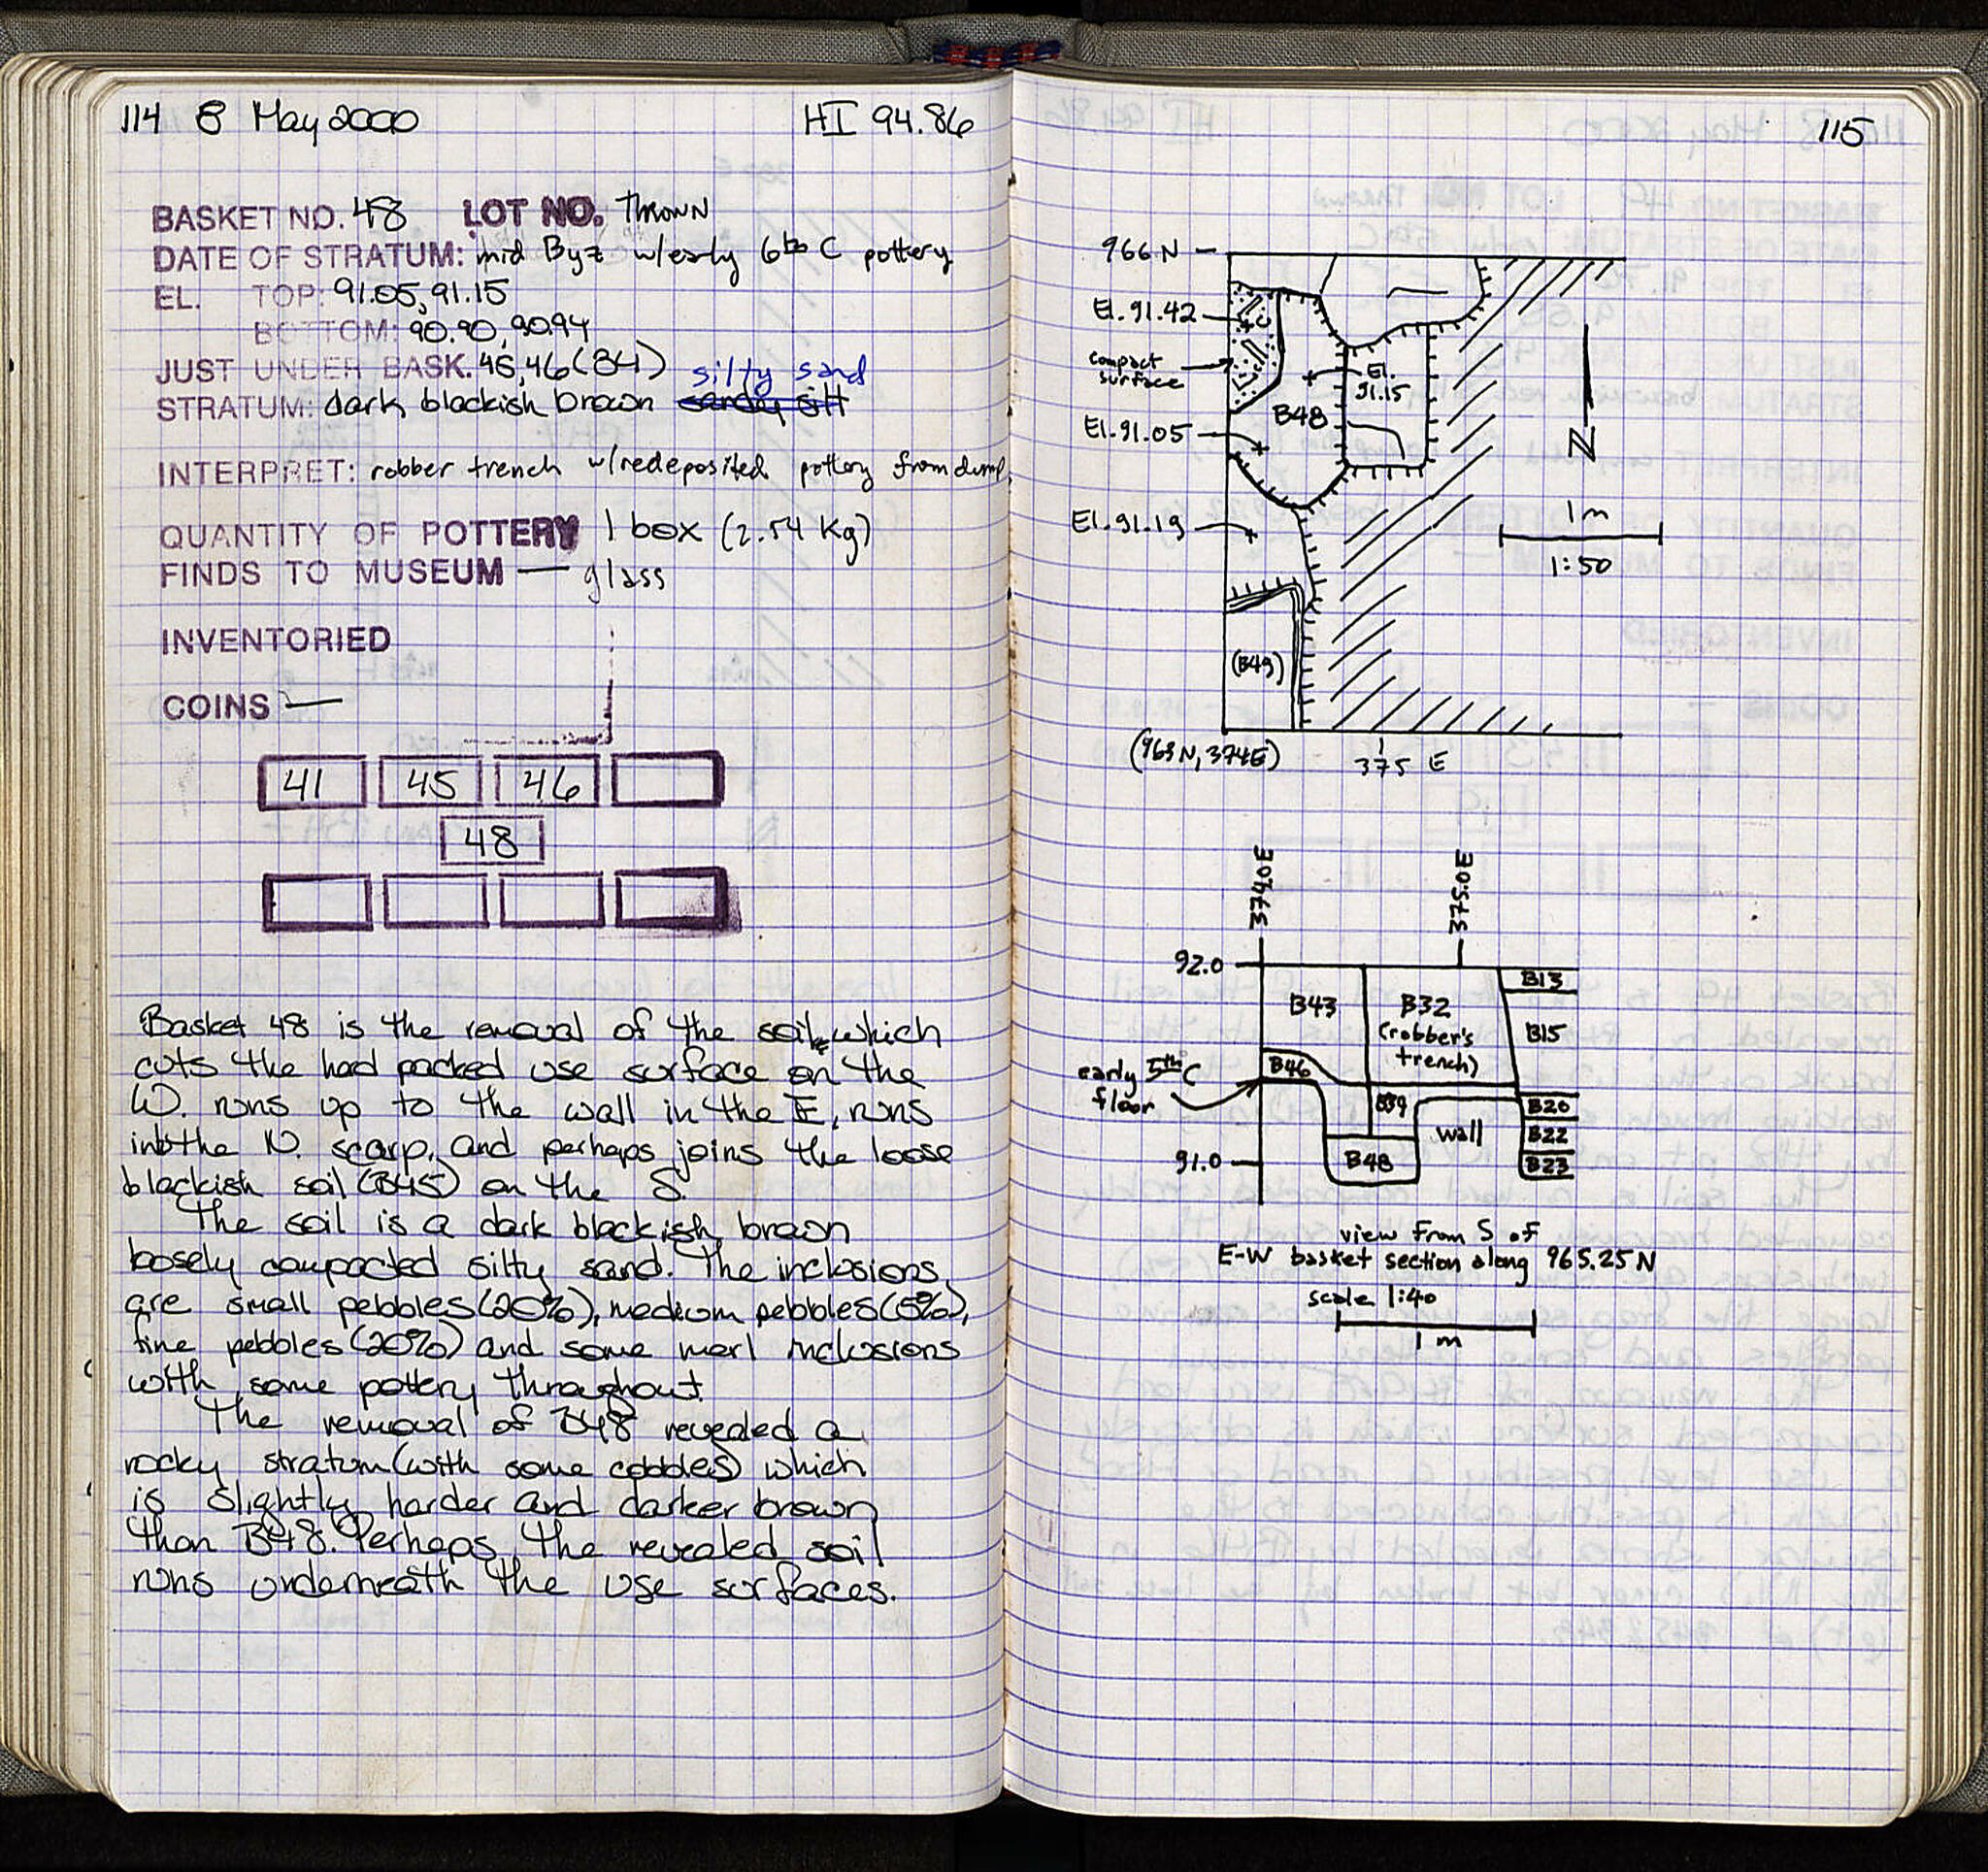 114 8 May 2000 HI 94.86
BASKET NO. 48 LOT NO. Thrown
DATE OF STRATUM: mid Byz w/early 6th C pottery
EL. TOP: 91.05, 91.15
BOTTOM: 90.90, 90.94
JUST UNDER BASK. 45, 46 (B41) silty sand
STRATUM: dark blackish brown sandy silt
INTERPRET: robber trench w/redeposited pottery from dump
QUANTITY OF POTTERY 1 box (2.54 Kg)
FINDS TO MUSEUM — glass
INVENTORIED
COINS —
41 45 46
48
Basket 48 is the removal of the soil which
cuts the hard packed use surface on the
W. runs up to the wall in the E, runs
into the N. scarp, and perhaps joins the loose
blackish soil (B45) on the S.
The soil is a dark blackish brown
loosely compacted silty sand. The inclusions
are small pebbles (20%), medium pebbles (5%),
fine pebbles (20%) and some marl inclusions
with some pottery throughout.
The removal of B48 revealed a
rocky stratum (with some cobbles) which
is slightly harder and darker brown
than B48. Perhaps the revealed soil
runs underneath the use surfaces.
115
966 N
El. 91.42
compact
surface
El.
91.15
B48
El. 91.05
N
El. 91.19
1m
1:50
(B49)
(963N, 374E)
375 E
374.0E
375.0E
92.0
B13
B43
B32
(robber's
trench)
B15
B46
early 5th C
floor
B39
B20
wall
B22
91.0
B48
B23
view from S of
E-W basket section along 965.25N
scale 1:40
1 m